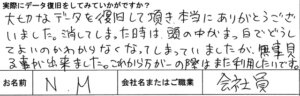 実際にデータ復旧をしてみていかがですか?
大切なデータを復旧して頂き本当にありがとうござい
ました。消してしまった時は、頭の中がまっ白でどうし
てよいのかわからなくなってしまっていましたが、無事見
る事が出来ました。これから万が一の際はまた利用したいです。
お名前 N.M 会社名またはご職業 会社員